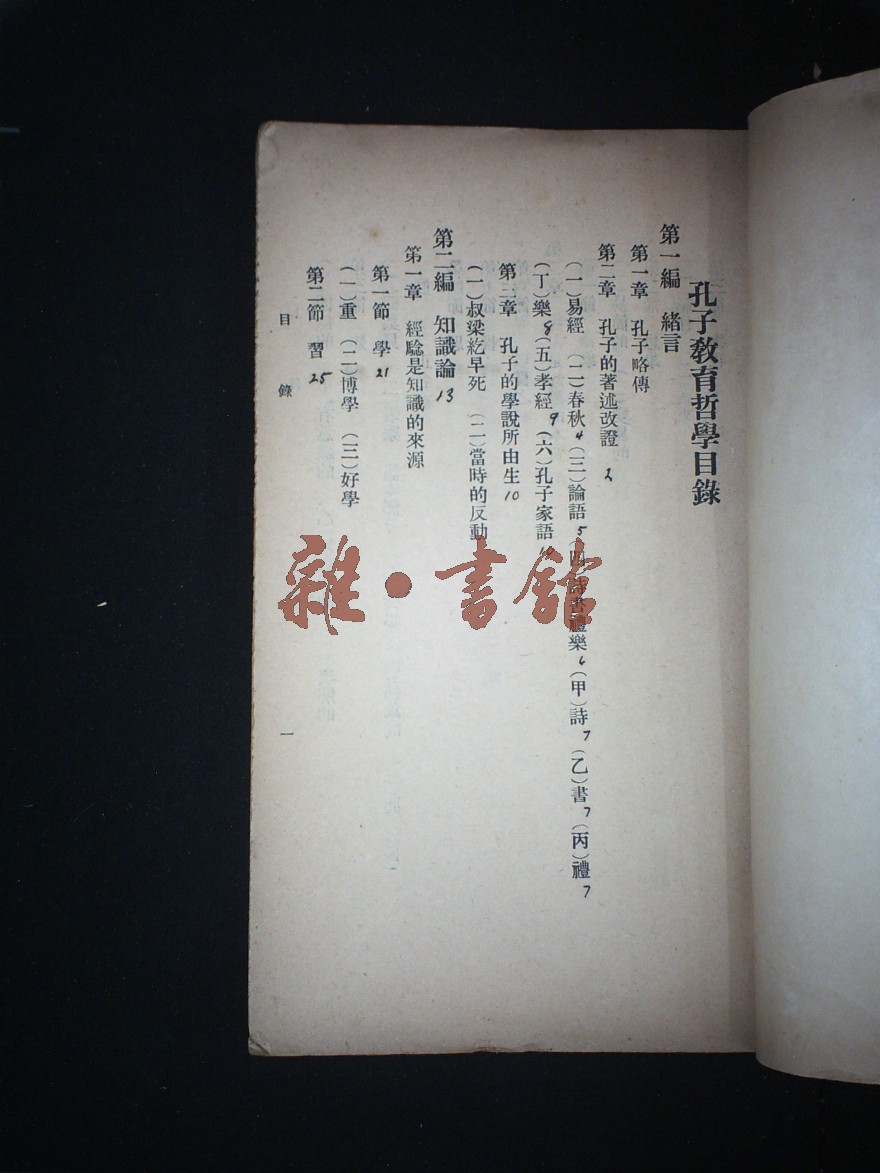 孔子敎育哲學目錄
第一編 緖言
第一章 孔子略傳
第二章 孔子的著述改證 2
(一)易經 (二)春秋 4 (三)論語 5 (四)詩書禮樂 6 (甲)詩 7 (乙)書 7 (丙)禮 7
(丁)樂 8 (五)孝經 9 (六)孔子家語 10
第三章 孔子的學說所由生 10
(一)叔梁紇早死 (二)當時的反動
第二編 知識論 13
第一章 經驗是知識的來源
第一節 學 21
(一)重 (二)博學 (三)好學
第二節 習 25
目錄
一
雜·書館